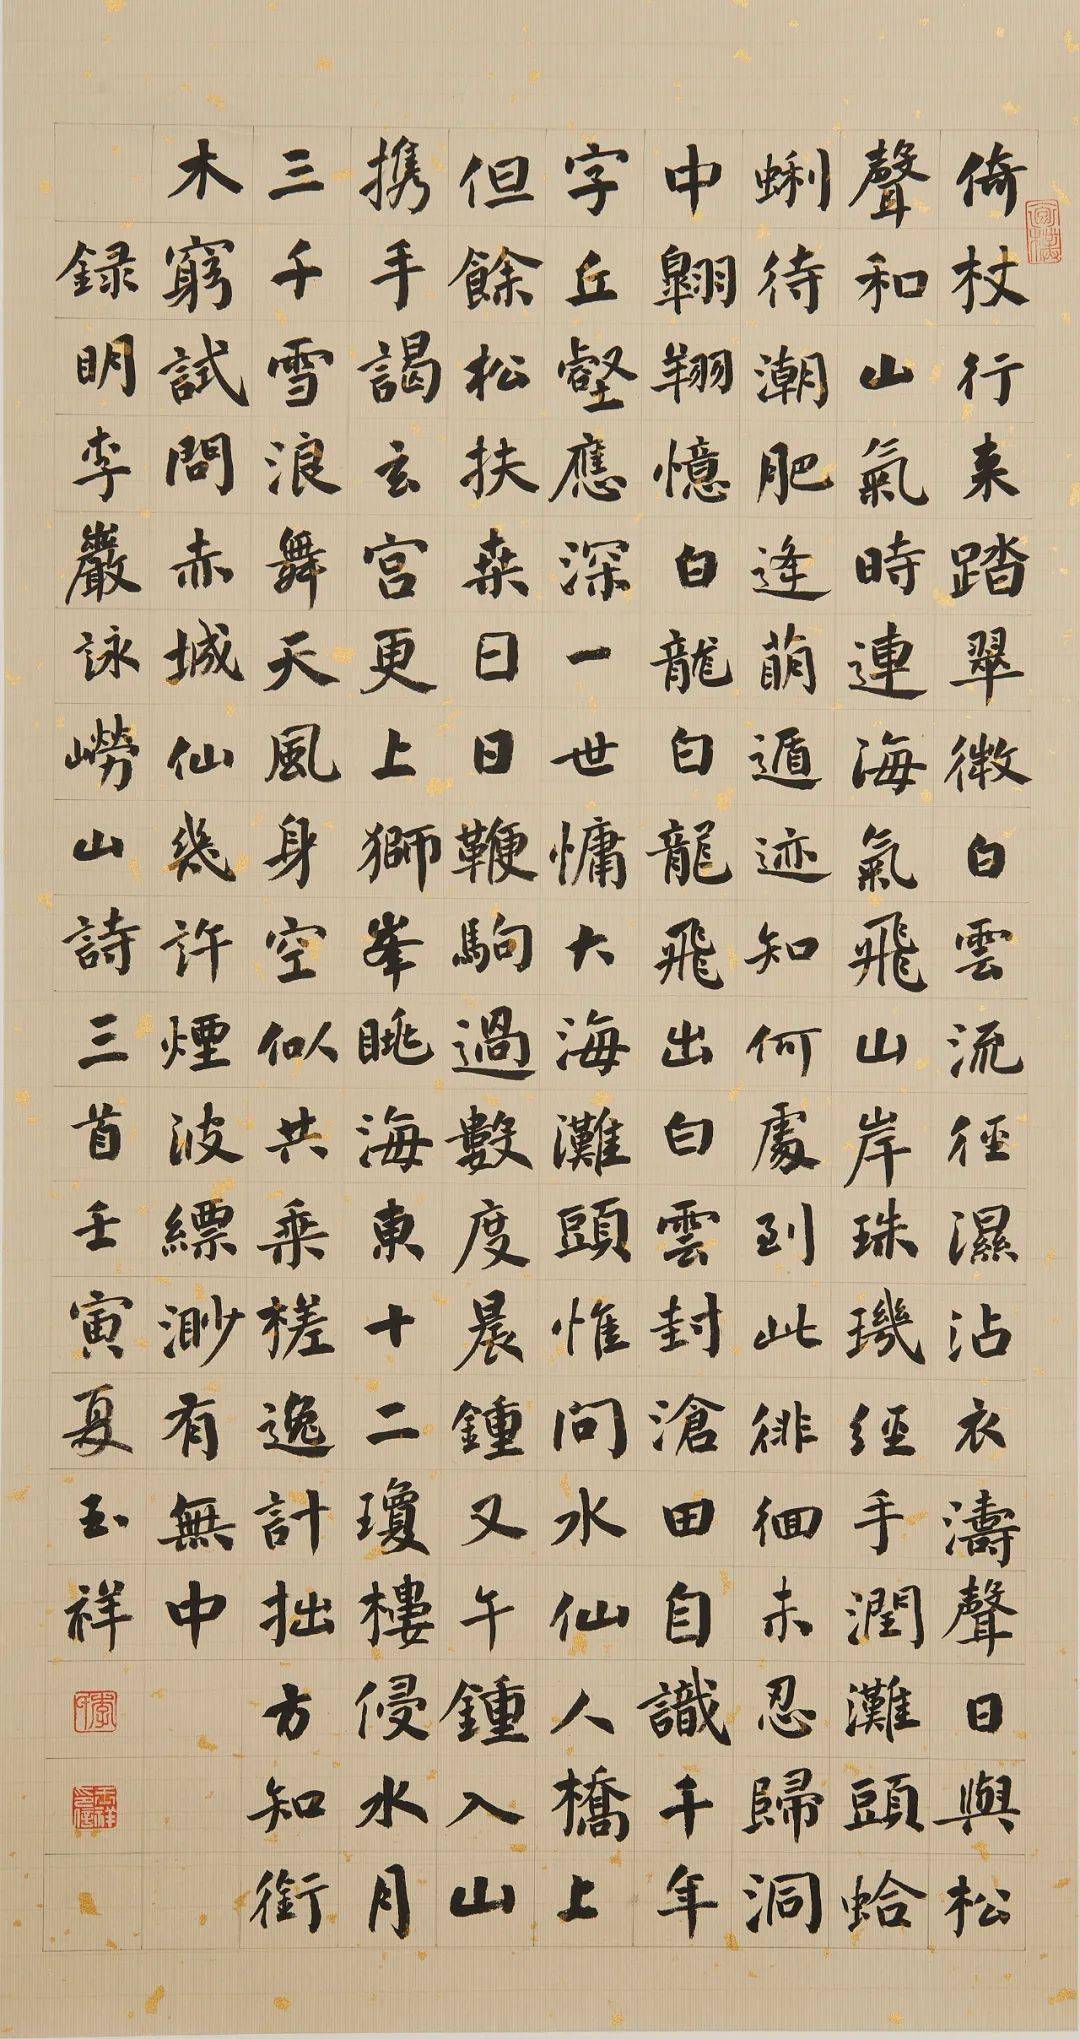 倚杖行来踏翠微白雲流徑濕沾衣濤聲日與松
聲和山氣時連海氣飛山岸珠璣經手潤灘頭蛤
蜊待潮肥逢萠遁迹知何處到此徘徊未忍歸洞
中翺翔憶白龍白龍飛出白雲封滄田自識千年
字丘壑應深一世慵大海灘頭惟问水仙人橋上
但餘松扶桒日日鞭駒過數度晨鍾又午鍾入山
携手謁玄宫更上獅峯眺海東十二瓊樓侵水月
三千雪浪舞天風身空似共乘槎逸計拙方知銜
木窮試問赤城仙幾許煙波縹渺有無中
録明李巖詠嶗山詩三首壬寅夏玉祥